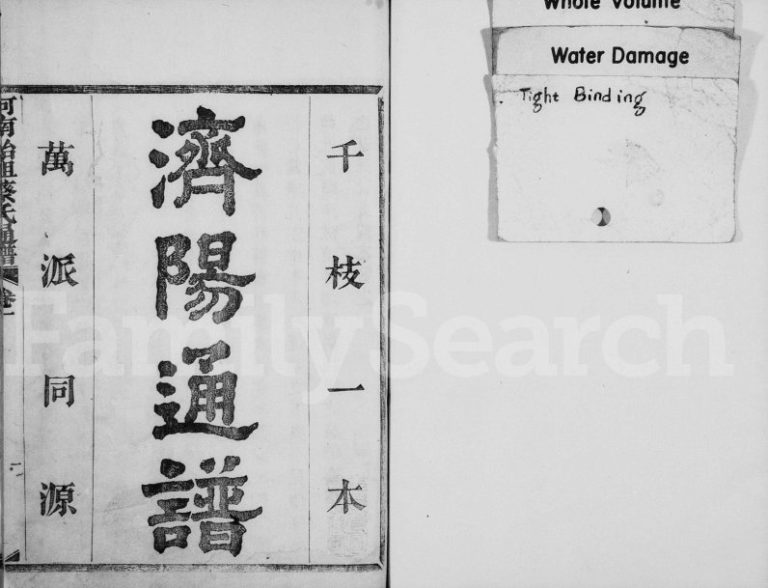 Whole Volume
Water Damage
Tight Binding
千枝一本
濟陽通譜
萬派同源
河南始祖蔡氏通譜
卷一
FamilySearch